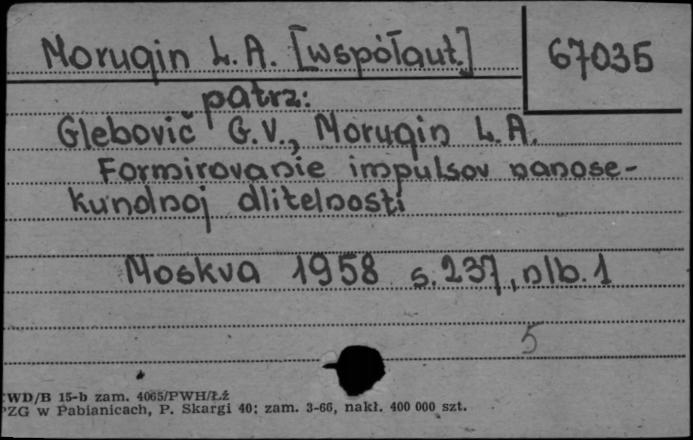 Morugin L. A. [współaut.]
67035
patrz:
Glebovič G. V., Morugin L. A.
Formirovanie impulsov nanose-
kundnoj dlitelnosti
Moskva 1958 s. 237, nlb. 1
5
WD/B 15-b zam. 4065/PWH/Łź
PZG w Pabianicach, P. Skargi 40; zam. 3-66, nakł. 400 000 szt.